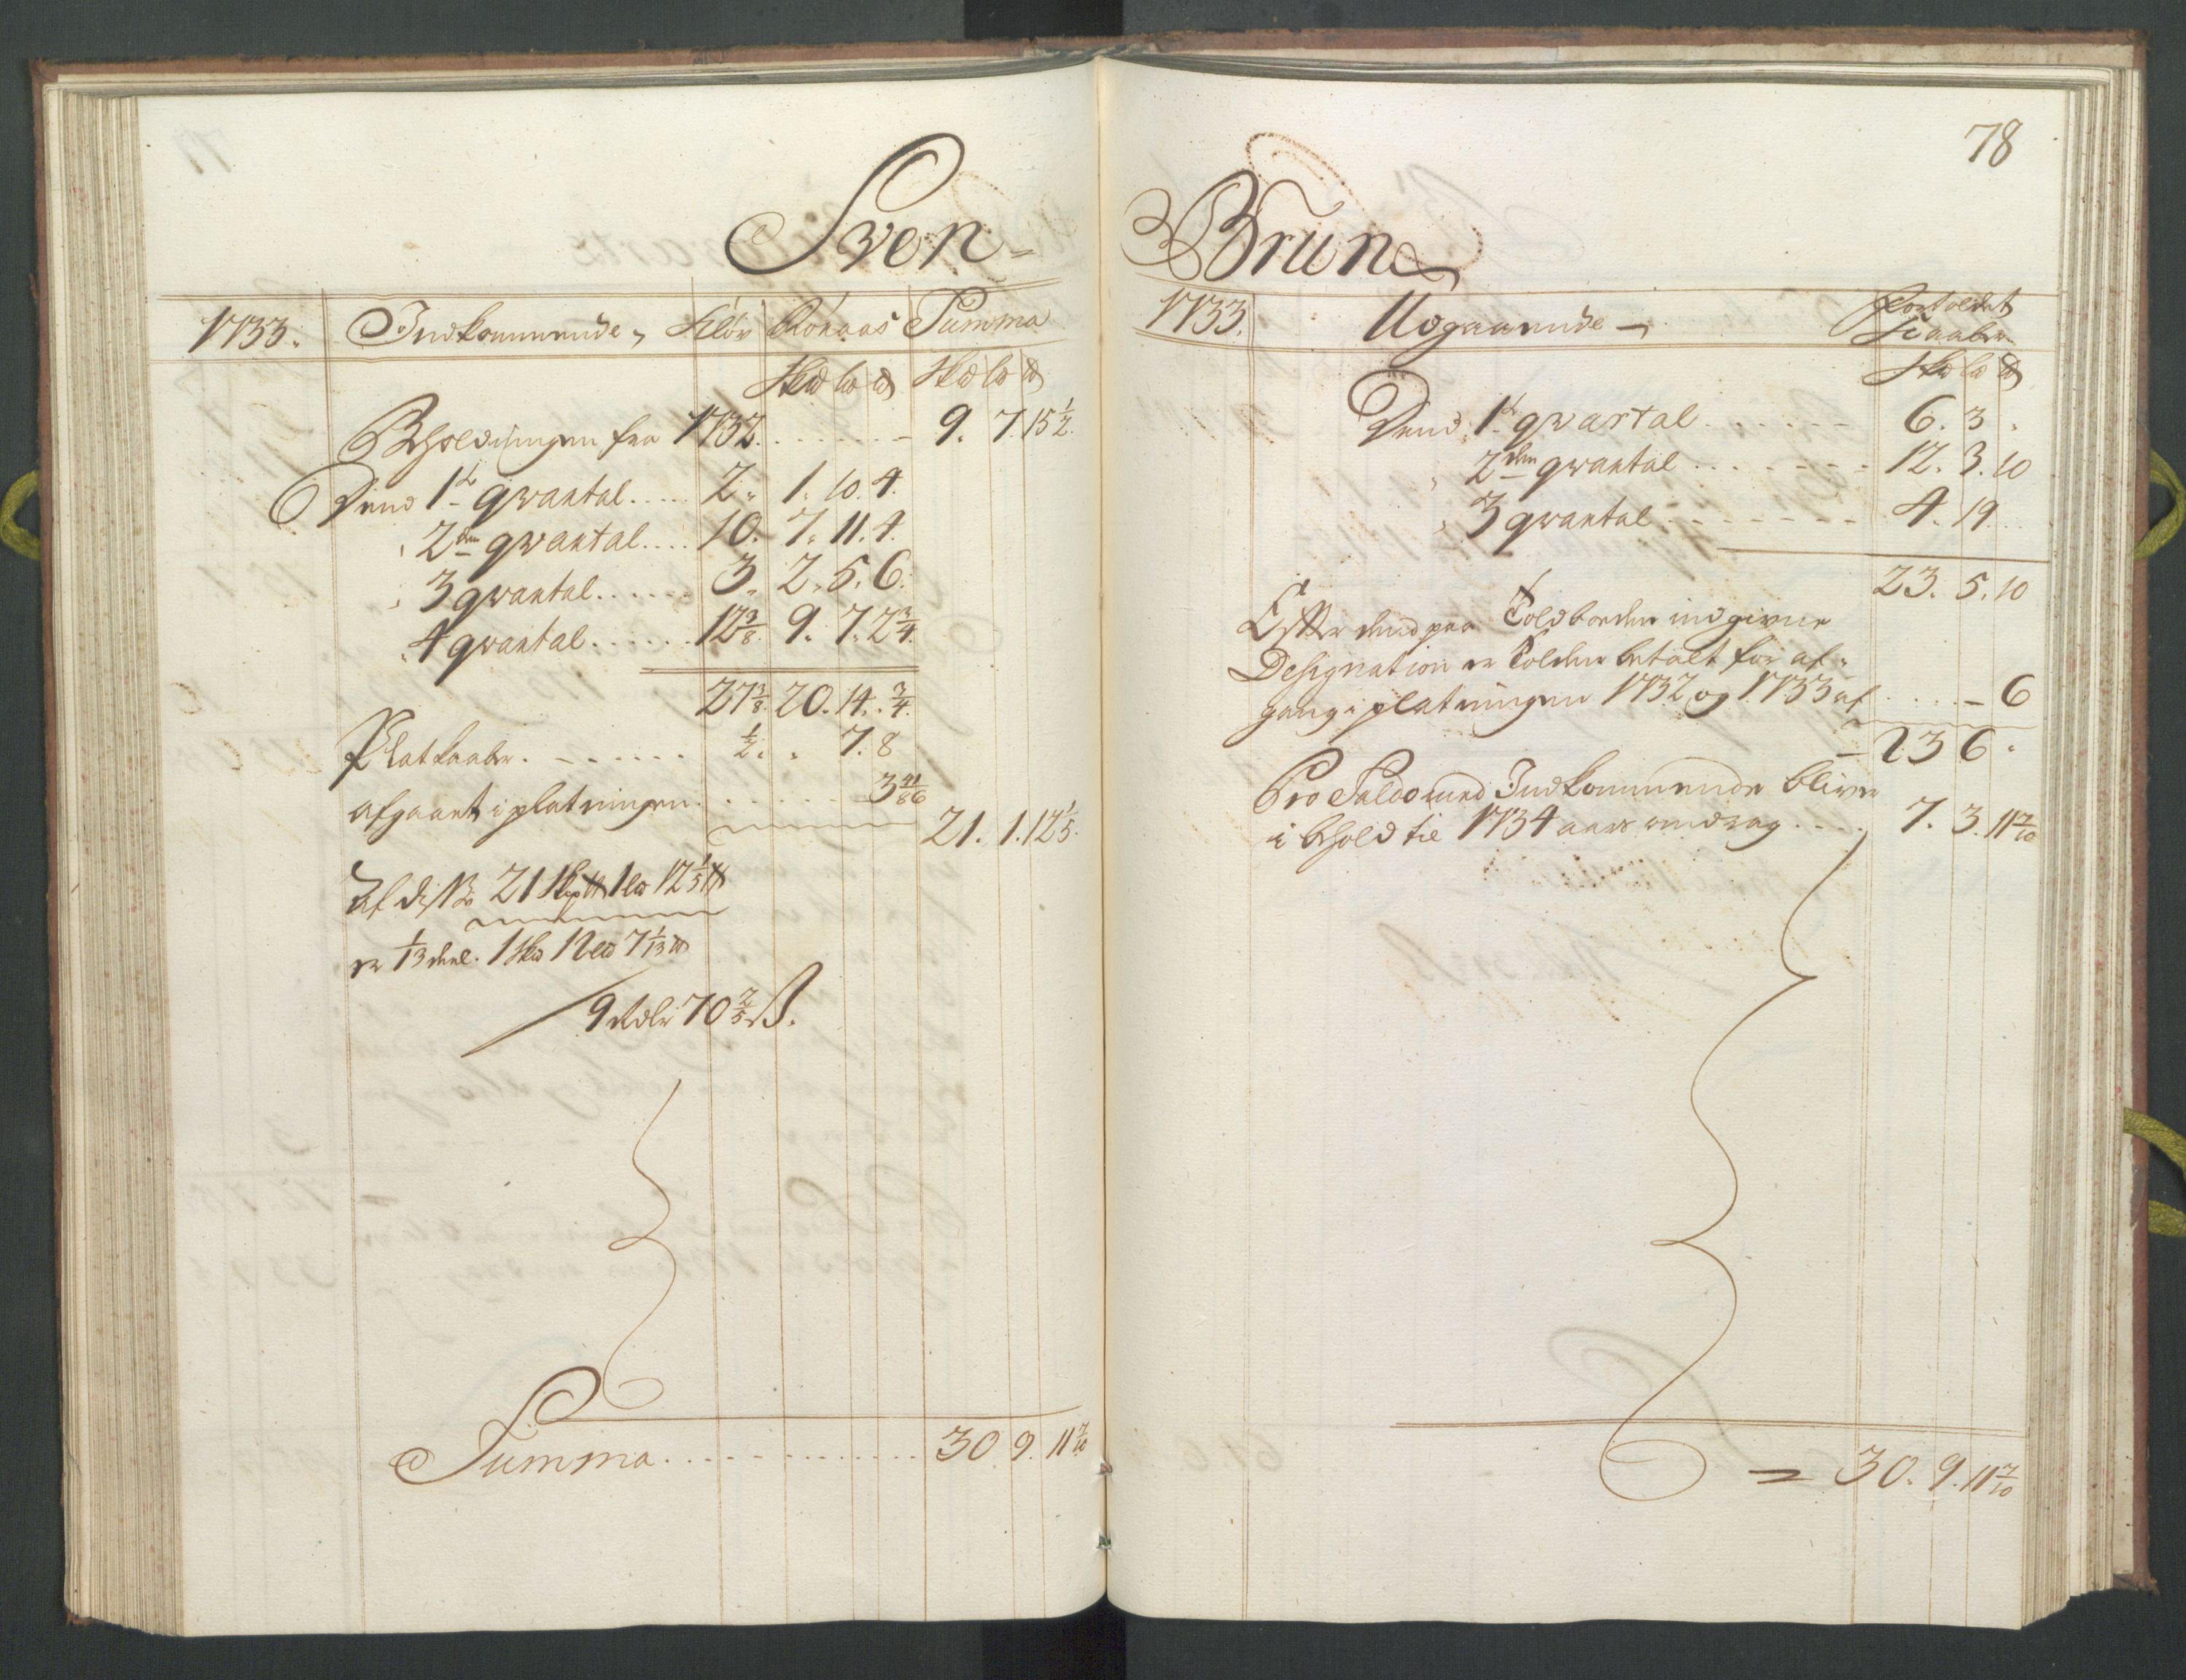 78
Sven Brun
1733. Indkommende, Kløv Rokaas Summa
Skd ld d Skd ld d
Beholdningen fra 1732. . . . . . . 9. 7. 15 1/2.
Dend 1ste qvartal. . . . . 2. 1. 10. 4.
2den qvartal. . . . 10. 7. 11. 4.
3 qvartal. . . . . . 3. 2. 5. 6.
4 qvartal. . . . . . 12 3/8. 9. 7. 2 3/4.
27 3/8. 20. 14. 3/4.
Platkaaber. . . . . . . 1/2. 7. 8
afgaaet i platningen. . . . . . . 3
21. 1. 12 1/5.
af disse 21 Skp 1 ld 12 1/5
er 1/13 deel. 1 Skd 12 ld 7 1/13
9 Rdlr 70 2/5 ß.
Summa. . . . . . . . . . . . . 30 9. 11 7/10
1733. Udgaaende Fortoldet
Kaaber
Skd ld d
Dend 1ste qvartal. . . . . . 6. 3
2den qvartal. . . . . . . 12. 3. 10
3 qvartal. . . . . . . 4. 19.
23. 5. 10
Efter dend paa Toldboden indgivne
Designation er Tolden betalt for af-
gang i platningen 1732 og 1733 af . . . . 6
23 6
Pro Saldo imod Indkommende bliver
i behold til 1734 aars inddrag. . . . 7. 3. 11 7/10
= 30. 9. 11 7/10